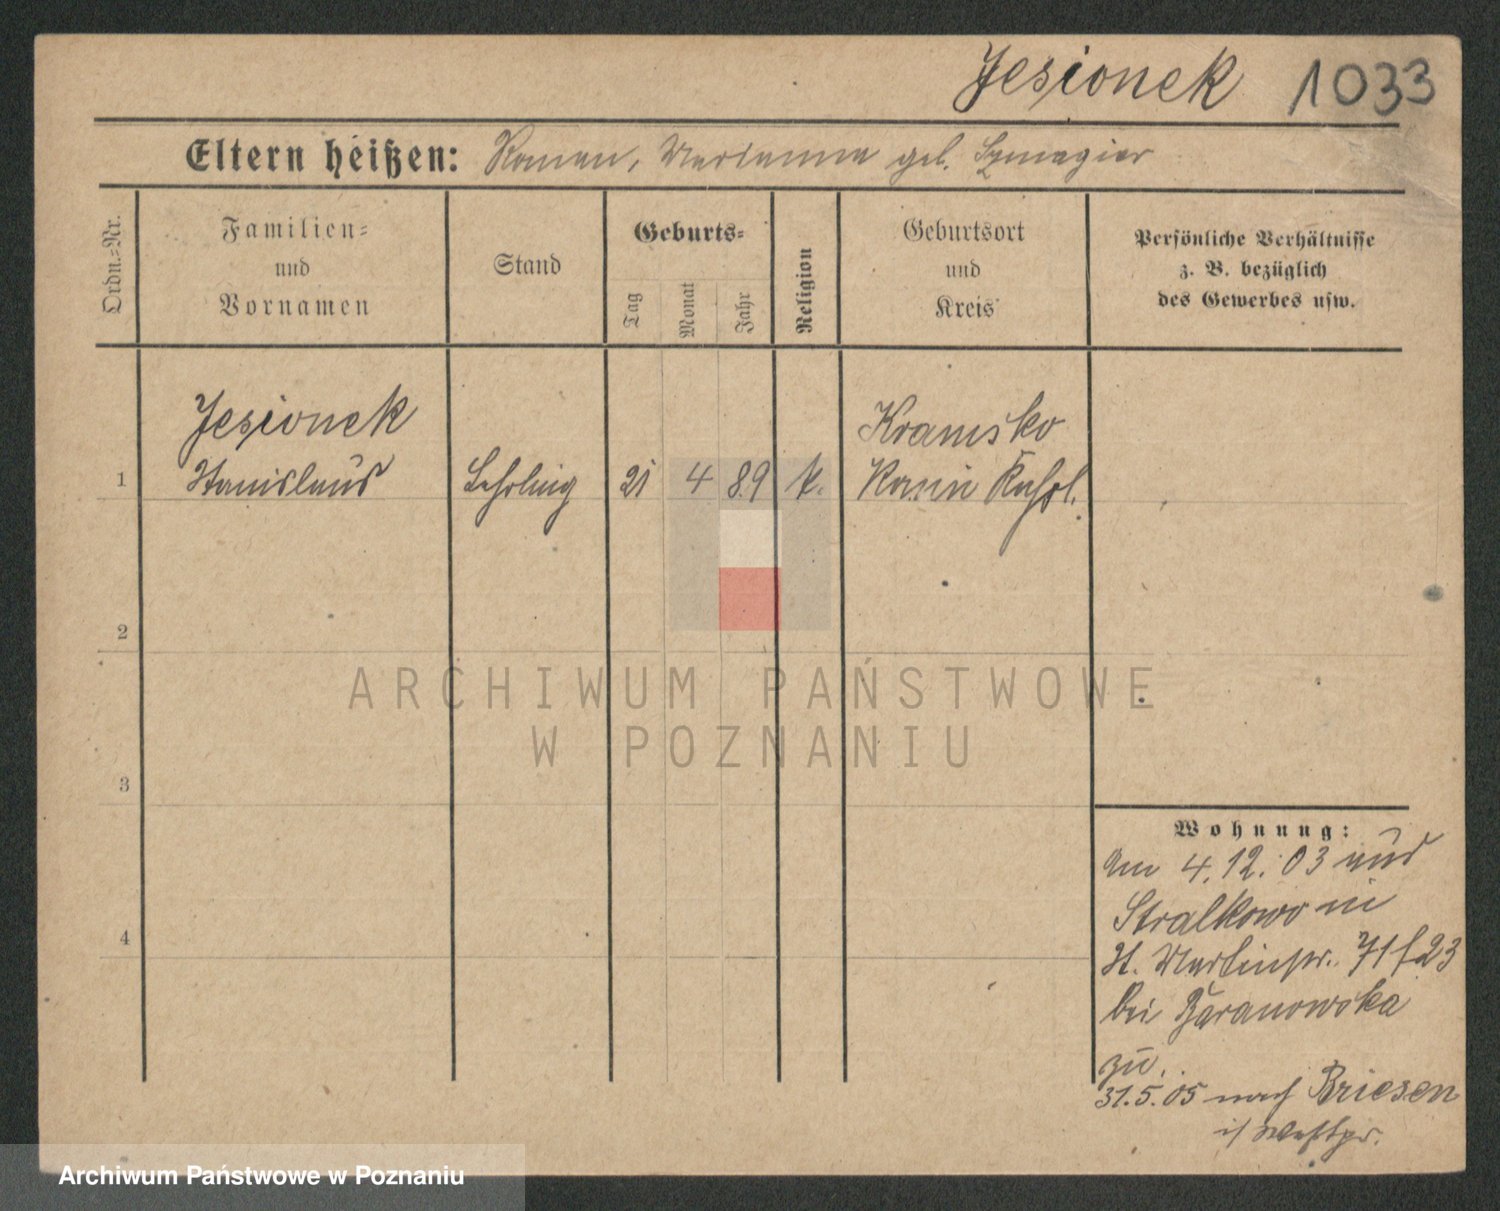 Jesionek 1033
Eltern heißen: Roman, Marianna geb. Szmagier
Ordn.=Nr.
Familien=
und
Vornamen
Stand
Geburts=
Tag
Monat
Jahr
Religion
Geburtsort
und
Kreis
Persönliche Verhältnisse
z. B. bezüglich
des Gewerbes usw.
Jesionek
Kramsko
1 Stanislaus Lehrling 21 4 89 k.
2
3
4
Wohnung:
am 4.12.03 aus
Stralkowo in
St. Martinstr. 71 f 23
bei Baranowska
zu.
31.5.05 nach Briesen
i/ Westpr.
ARCHIWUM PAŃSTWOWE
W POZNANIU
Archiwum Państwowe w Poznaniu